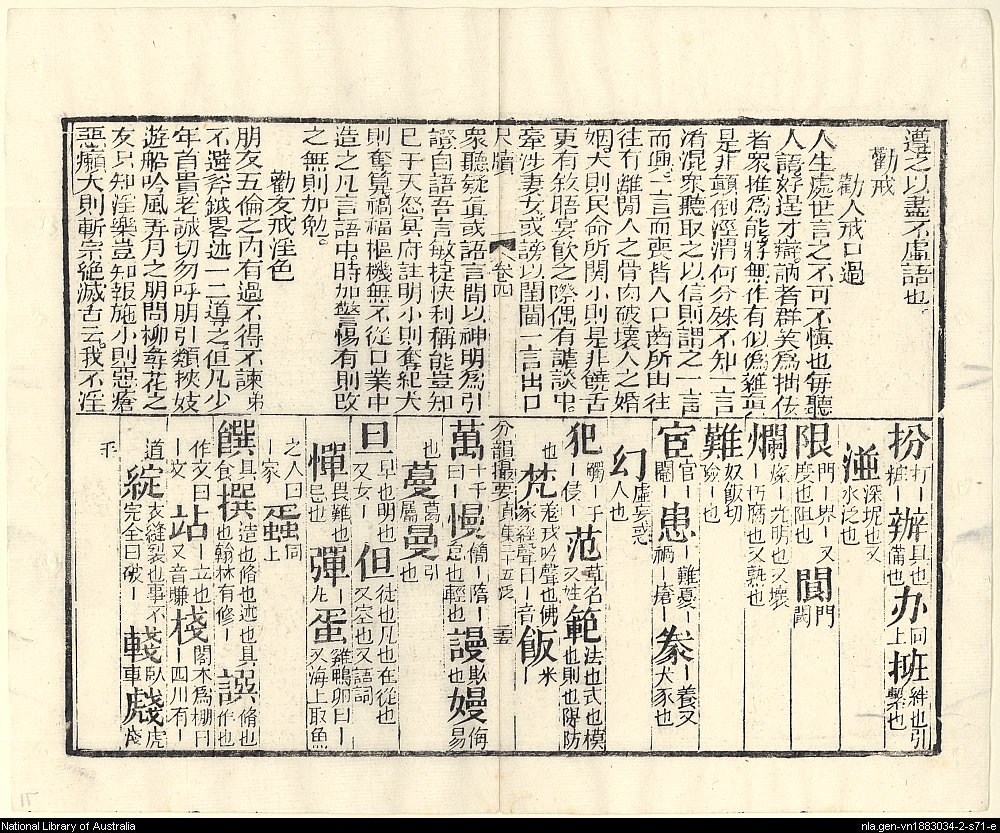 遵之以盡不虛語也
勸戒
勸人戒口過
人生處世言之不可不愼也每聽
人語好逞才辯訥者群笑爲拙佞
者衆推爲能將無作有似僞雜眞
是非顛倒涇渭何分殊不知一言
淆混衆聽取之以信則謂之一言
而興一言而喪皆人口齒所由往
往有離閒人之骨肉破壞人之婚
姻大則民命所関小則是非饒舌
更有敘晤宴飮之際偶有謔談中
牽涉妻女或謗以閨閫一言出口
尺牘 卷四
衆聽疑眞或語言間以神明爲引
證自語吾言敏捷快利稱能豈知
已干天怒冥府註明小則奪紀大
則奪算禍福樞機無不從口業中
造之凡言語中時加警惕有則改
之無則加勉。
勸友戒淫色
朋友五倫之內有過不得不諫弟
不避斧鉞畧述一二導之但凡少
年首貴老誠切勿呼朋引類挾妓
遊船吟風弄月之朋問柳尋花之
友只知淫樂豈知報施小則惡瘡
惡癩大則斬宗絕滅古云。我不淫
扮打丨粧丨辦丨具也備也办同上搬絆也引繫也
湴深坭也又水泛也
限門丨界丨又度也阻也閬門
爛燦丨光明也又壞丨朽腐也又熟也
難奴飯切險丨也
宦官丨閹丨患丨難憂丨禍丨瘡丨豢丨養又犬豕也
幻虛妄惑人也
犯丨侵丨觸丨于范草名又姓範法也式也模也則也隄防
也梵丨吟聲也佛家經聲曰丨音飯丨米
分韻撮要 三十五
萬十千曰丨慢簡丨隋丨怠也輕也謾欺也嫚侮易
也蔓葛屬曼引也
旦早也明也又女丨但徒也凡也在從也又空也又語詞
憚畏難也忌也彈丨丸蛋雞鴨卵曰丨又海上取魚
之人曰丨家蜑同上
饌具食撰造也脩也述也具也翰林有修丨譔脩也作也
作文曰丨文站丨立也又音賺棧閣木爲棚曰丨四川有丨
道綻衣縫裂也事不完全曰破丨輚臥車虥虎淺
毛
National Library of Australia
nla.gen-vn1883034-2-s71-e